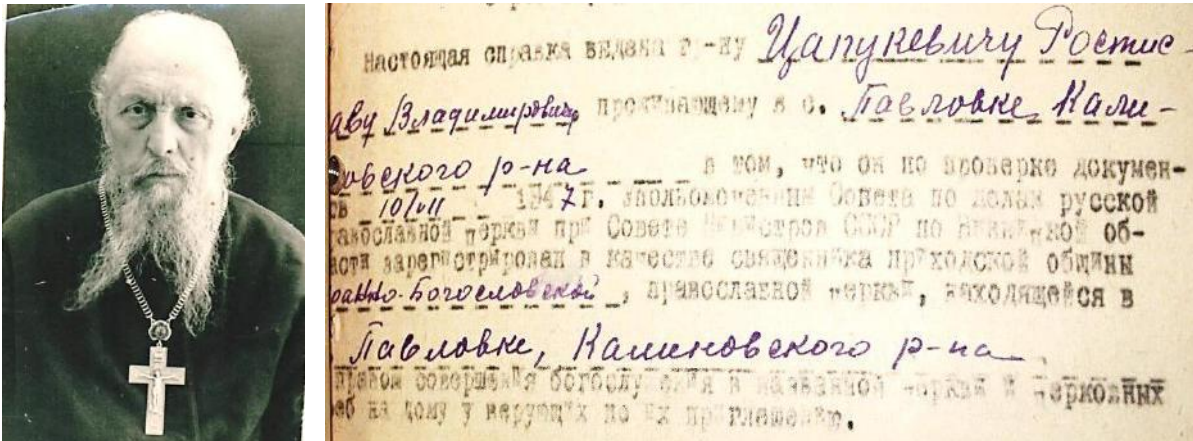 Настоящая справка выдана гр-ну Цапукевичу Ростис-
аву Владимировичу проживающему в с. Павловке Кали-
овского р-на в том, что он по проверке докумен-
10/VII 1947 г. уполномоченным Совета по делам русской
равославной церкви при Совете Министров СССР по Винницкой об-
асти зарегистрирован в качестве священника приходской общины
оанно-Богословской, православной церкви, находящейся в
Павловке, Калиновского р-на
правом совершения богослужения в названной церкви и церковных
еб на дому у верующих по их приглашению.